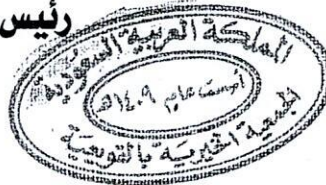 رئيس
المملكة العربية السعودية
أسست عام ١٤٠٩هـ
الجمعية الخيرية بالقويعية